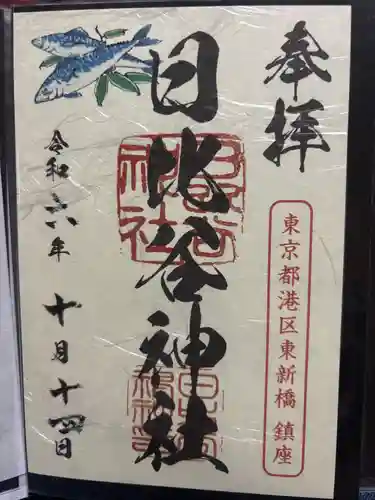 奉拝
東京都港区東新橋 鎮座
日比谷神社
日比谷神社
令和六年 十月十四日